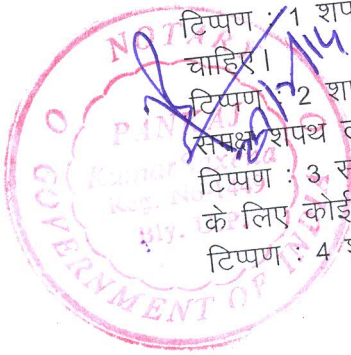 टिप्पण : 1 शप
चाहिए।
टिप्पण : 2 श
समक्ष शपथ
टिप्पण : 3 स
के लिए कोई
टिप्पण : 4
NOTARY
PANKAJ
Kumar
Reg. No.
Bly.
GOVERNMENT OF INDIA